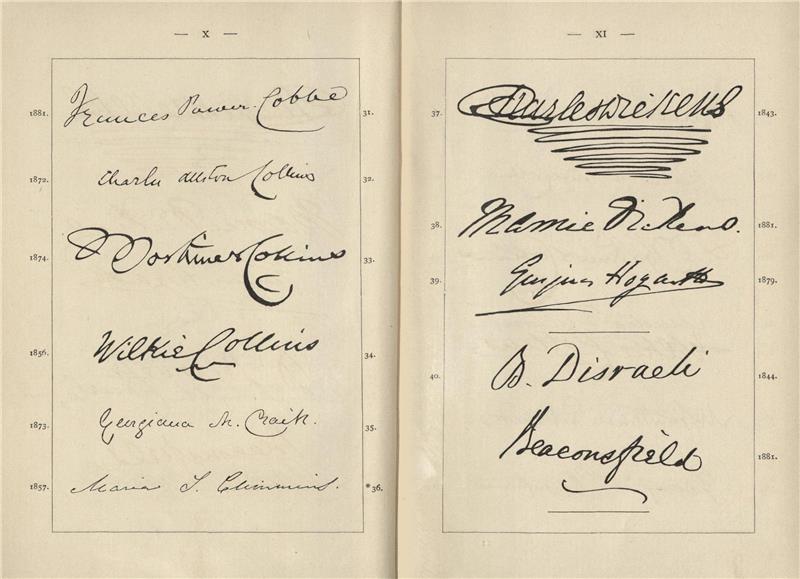 — X —
1881. Frances Power Cobbe 31.
1872. Charles Allston Collins 32.
1874. Mortimer Collins 33.
1856. Wilkie Collins 34.
1873. Georgiana M. Craik. 35.
1857. Maria S. Cummins. *36.
— XI —
37. Charles Dickens 1843.
38. Mamie Dickens. 1881.
39. Georgina Hogarth 1879.
40. B. Disraeli 1844.
Beaconsfield 1881.